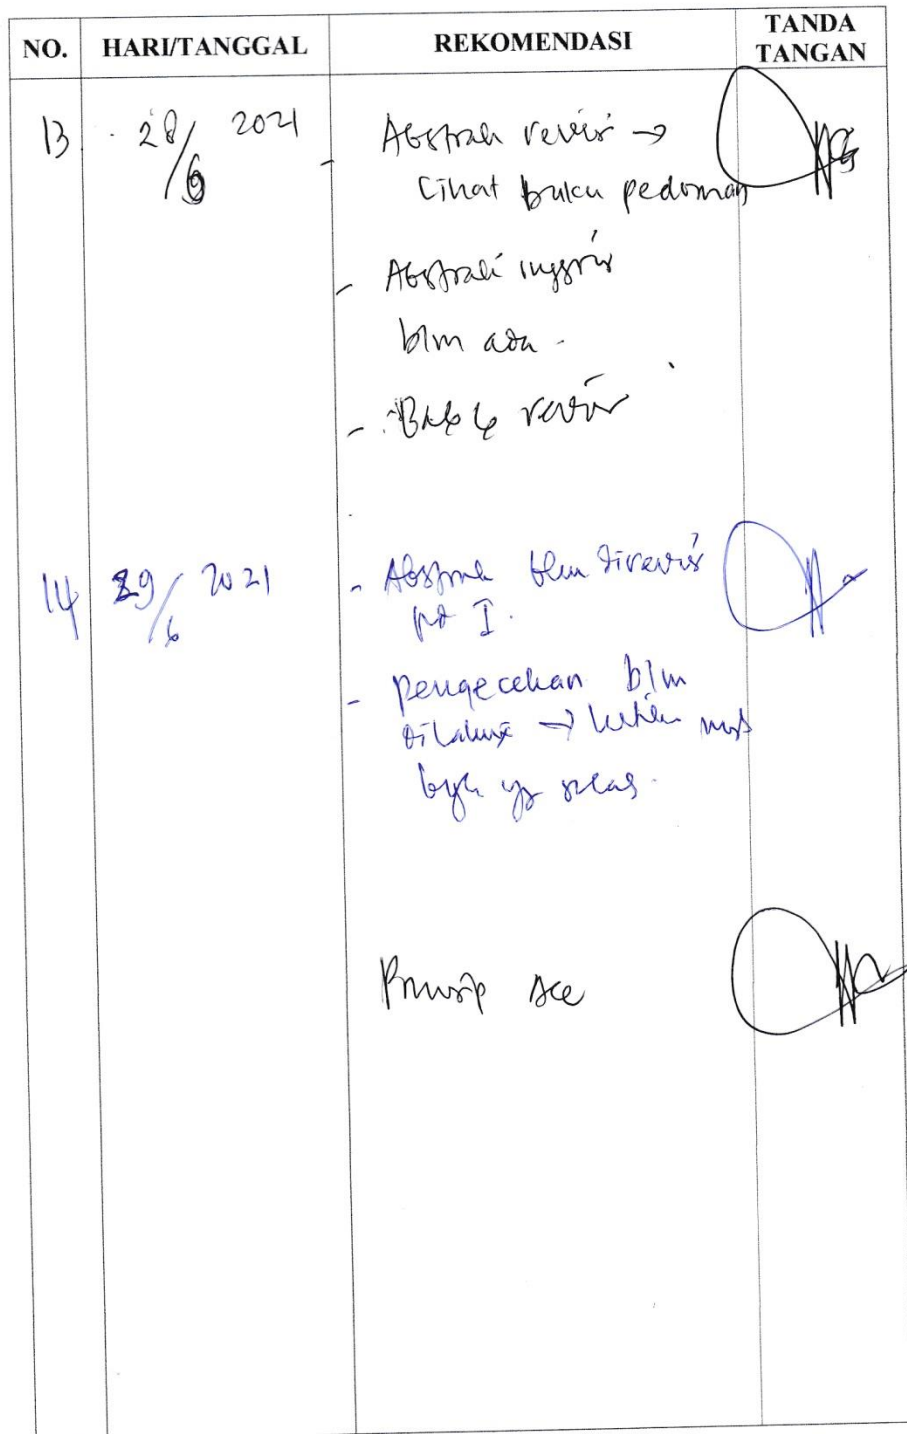 NO. HARI/TANGGAL REKOMENDASI TANDA TANGAN
13 28/6 2021 - Abstrak revisi →
Lihat buku pedoman
- Abstrak inggris
blm ada -
- Bab 6 revisi
14 29/6 2021 - Abstrak blm direvisi
I.
- pengecekan blm
→ ketikan msh
byk yg salah.
Prinsip Acc